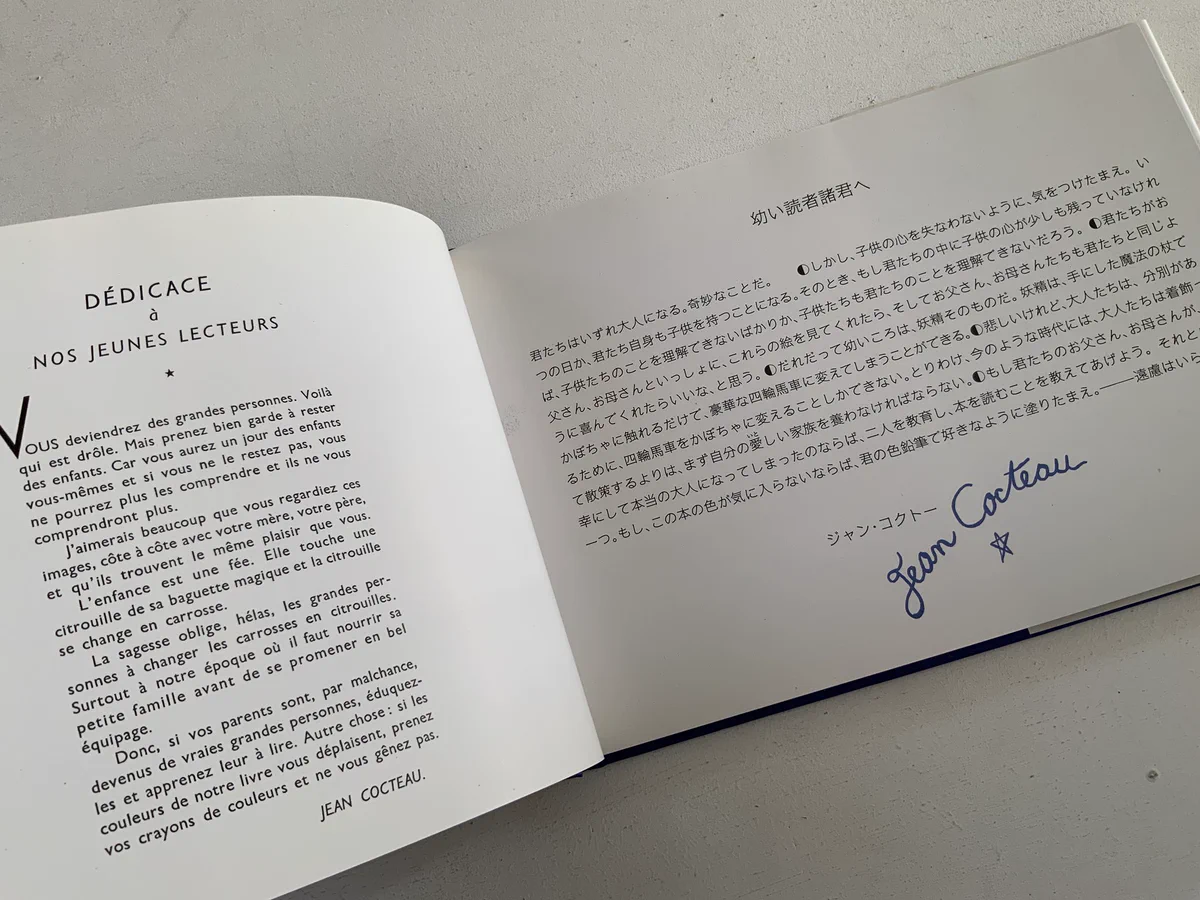 DÉDICACE
à
NOS JEUNES LECTEURS
★
VOUS deviendrez des grandes personnes. Voilà
qui est drôle. Mais prenez bien garde à rester
des enfants. Car vous aurez un jour des enfants
vous-mêmes et si vous ne le restez pas, vous
ne pourrez plus les comprendre et ils ne vous
comprendront plus.
J'aimerais beaucoup que vous regardiez ces
images, côte à côte avec votre mère, votre père,
et qu'ils trouvent le même plaisir que vous.
L'enfance est une fée. Elle touche une
citrouille de sa baguette magique et la citrouille
se change en carrosse.
La sagesse oblige, hélas, les grandes per-
sonnes à changer les carrosses en citrouilles.
Surtout à notre époque où il faut nourrir sa
petite famille avant de se promener en bel
équipage.
Donc, si vos parents sont, par malchance,
devenus de vraies grandes personnes, éduquez-
les et apprenez leur à lire. Autre chose : si les
couleurs de notre livre vous déplaisent, prenez
vos crayons de couleurs et ne vous gênez pas.
JEAN COCTEAU.
幼い読者諸君へ
君たちはいずれ大人になる。奇妙なことだ。 ◐しかし、子供の心を失なわないように、気をつけたまえ。い
つの日か、君たち自身も子供を持つことになる。そのとき、もし君たちの中に子供の心が少しも残っていなけれ
ば、子供たちのことを理解できないばかりか、子供たちも君たちのことを理解できないだろう。 ◐君たちがお
父さん、お母さんといっしょに、これらの絵を見てくれたら、そしてお父さん、お母さんたちも君たちと同じよ
うに喜んでくれたらいいな、と思う。◐だれだって幼いころは、妖精そのものだ。妖精は、手にした魔法の杖で
かぼちゃに触れるだけで、豪華な四輪馬車に変えてしまうことができる。◐悲しいけれど、大人たちは、分別があ
るために、四輪馬車をかぼちゃに変えることしかできない。とりわけ、今のような時代には、大人たちは着飾
て散策するよりは、まず自分の愛しい家族を養わなければならない。◐もし君たちのお父さん、お母さんが、
幸にして本当の大人になってしまったのならば、二人を教育し、本を読むことを教えてあげよう。 それと、
一つ。もし、この本の色が気に入らないならば、君の色鉛筆で好きなように塗りたまえ。——遠慮はいら
ジャン・コクトー
Jean Cocteau